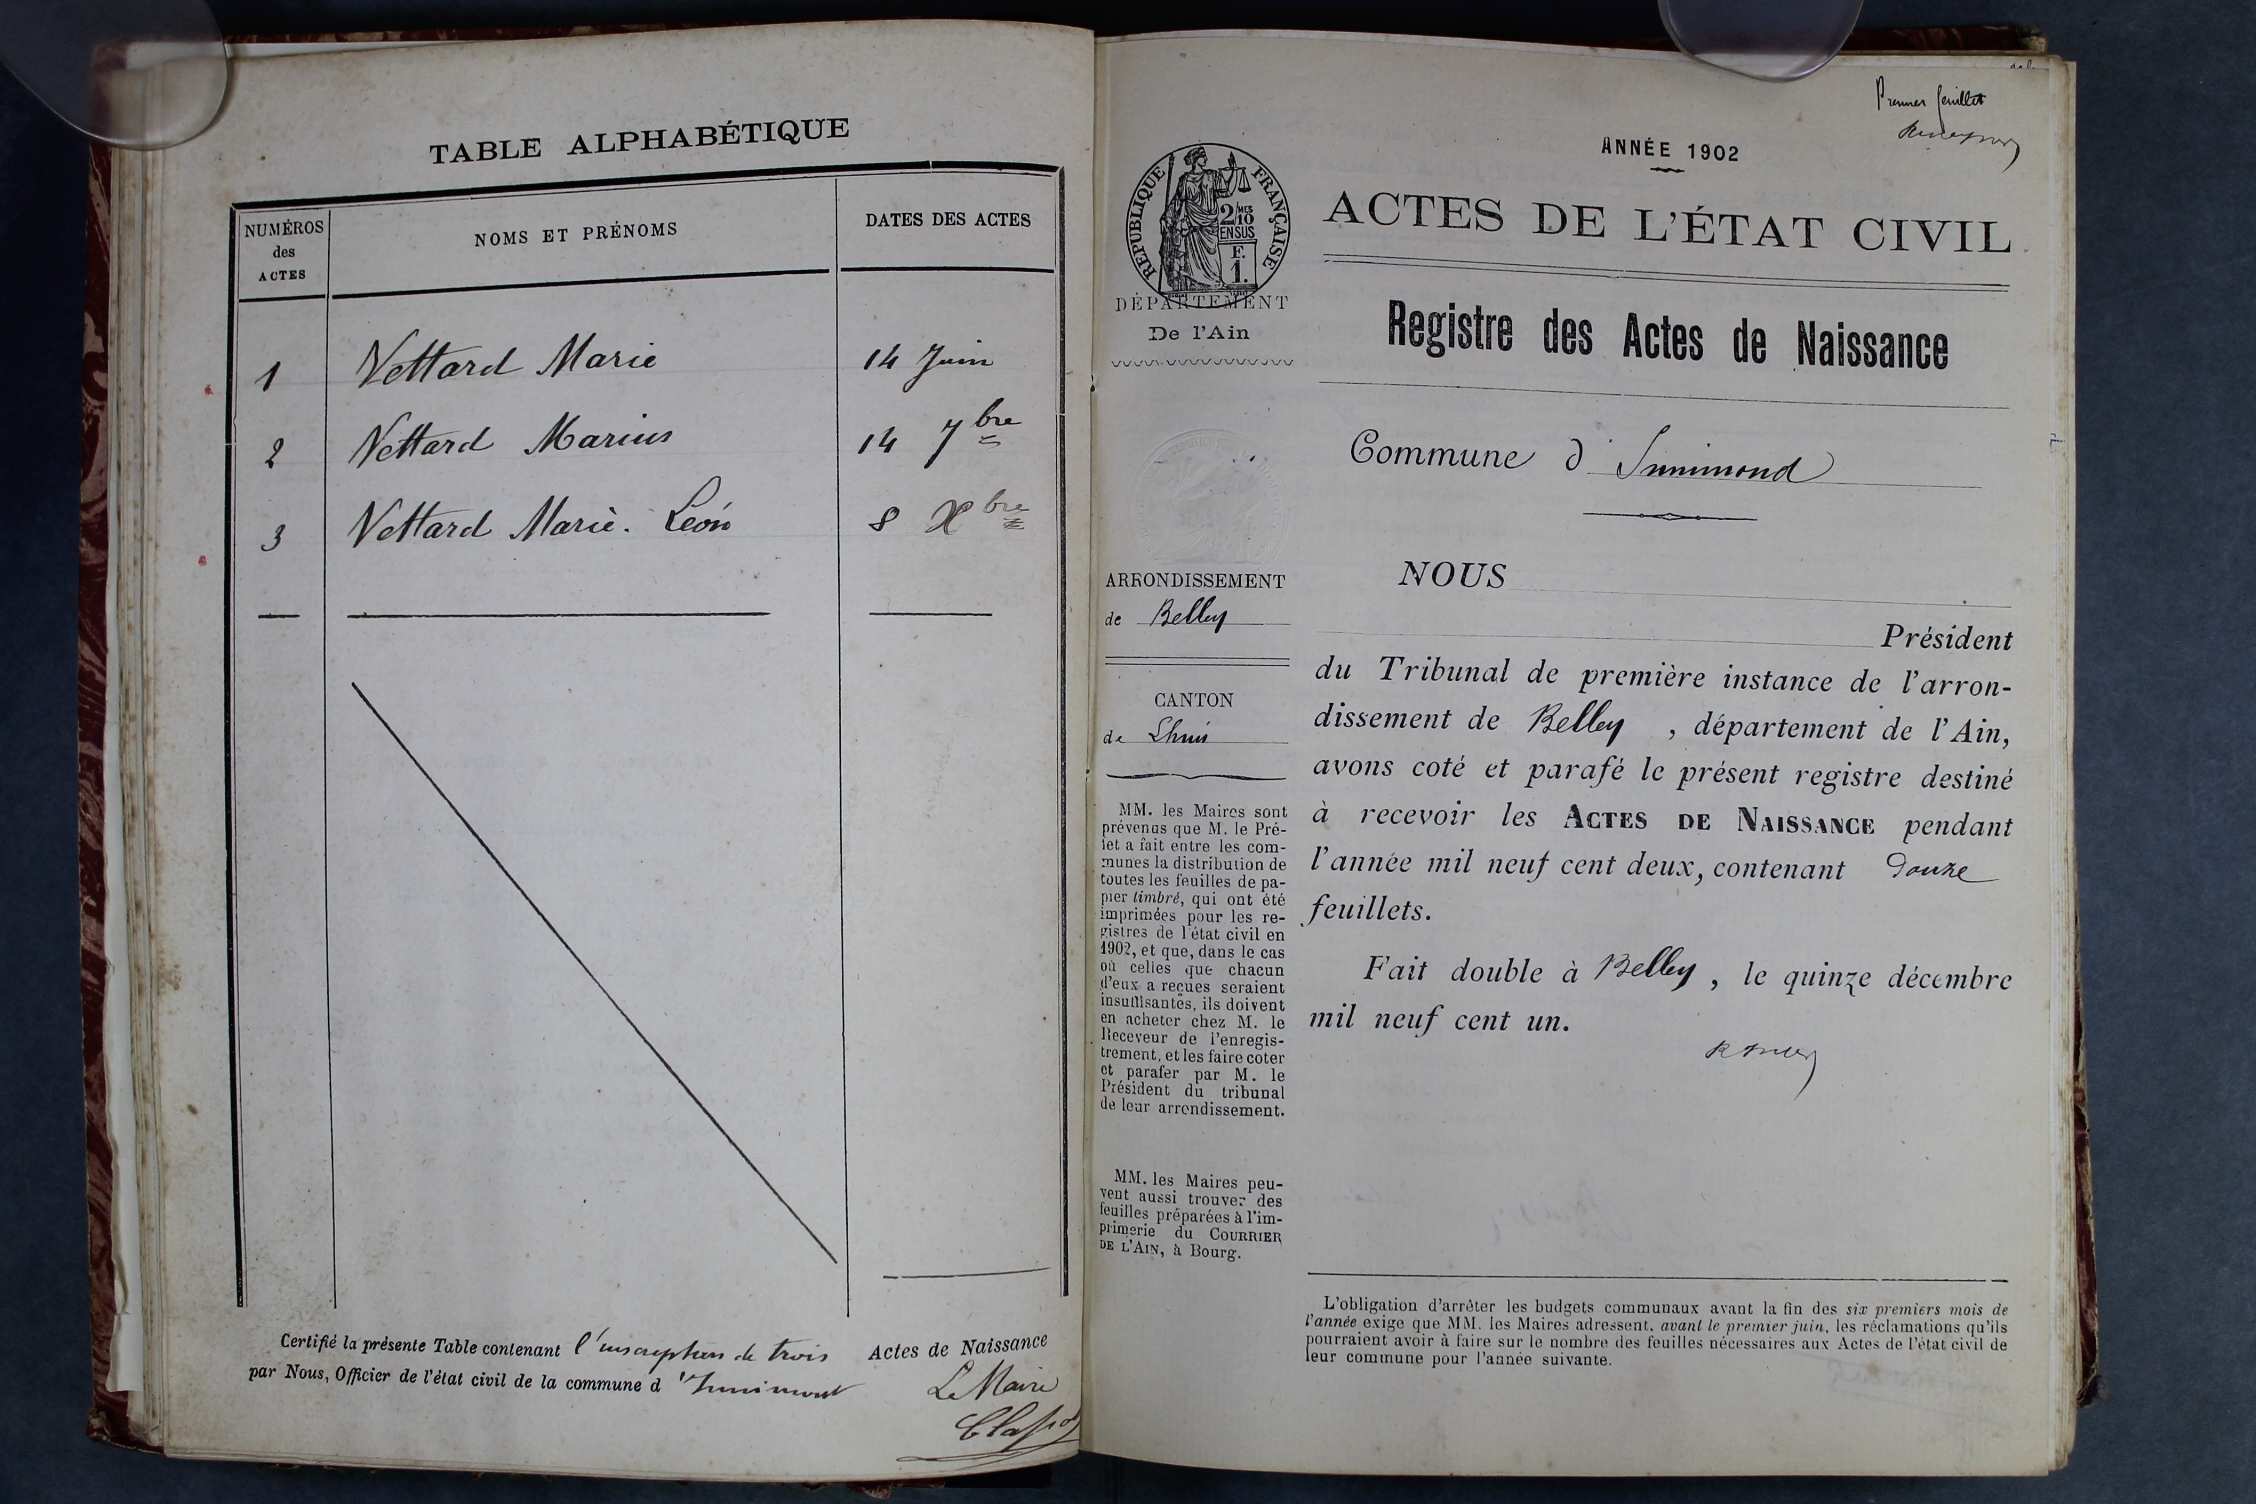 TABLE ALPHABÉTIQUE
NUMÉROS
des
ACTES
NOMS ET PRÉNOMS
DATES DES ACTES
1 Vettard Marie 14 Juin
2 Vettard Marius 14 7bre
3 Vettard Marie. Léon 8 Xbre
Certifié la présente Table contenant l'inscription de trois Actes de Naissance
par Nous, Officier de l'état civil de la commune d'Innimont
Le Maire
Premier feuillet
ANNÉE 1902
RÉPUBLIQUE FRANÇAISE
2/10 MES
EN SUS
F.
1.
DÉPARTEMENT
De l'Ain
ARRONDISSEMENT
de Belley
CANTON
de Lhuis
MM. les Maires sont
prévenus que M. le Pré-
fet a fait entre les com-
munes la distribution de
toutes les feuilles de pa-
pier timbré, qui ont été
imprimées pour les re-
gistres de l'état civil en
1902, et que, dans le cas
où celles que chacun
d'eux a reçues seraient
insuffisantes, ils doivent
en acheter chez M. le
Receveur de l'enregis-
trement, et les faire coter
et parafer par M. le
Président du tribunal
de leur arrondissement.
MM. les Maires peu-
vent aussi trouver des
feuilles préparées à l'im-
primerie du COURRIER
DE L'AIN, à Bourg.
ACTES DE L'ÉTAT CIVIL
Registre des Actes de Naissance
Commune d'Innimond
NOUS
Président
du Tribunal de première instance de l'arron-
dissement de Belley, département de l'Ain,
avons coté et parafé le présent registre destiné
à recevoir les ACTES DE NAISSANCE pendant
l'année mil neuf cent deux, contenant Douze
feuillets.
Fait double à Belley, le quinze décembre
mil neuf cent un.
L'obligation d'arrêter les budgets communaux avant la fin des six premiers mois de
l'année exige que MM. les Maires adressent, avant le premier juin, les réclamations qu'ils
pourraient avoir à faire sur le nombre des feuilles nécessaires aux Actes de l'état civil de
leur commune pour l'année suivante.